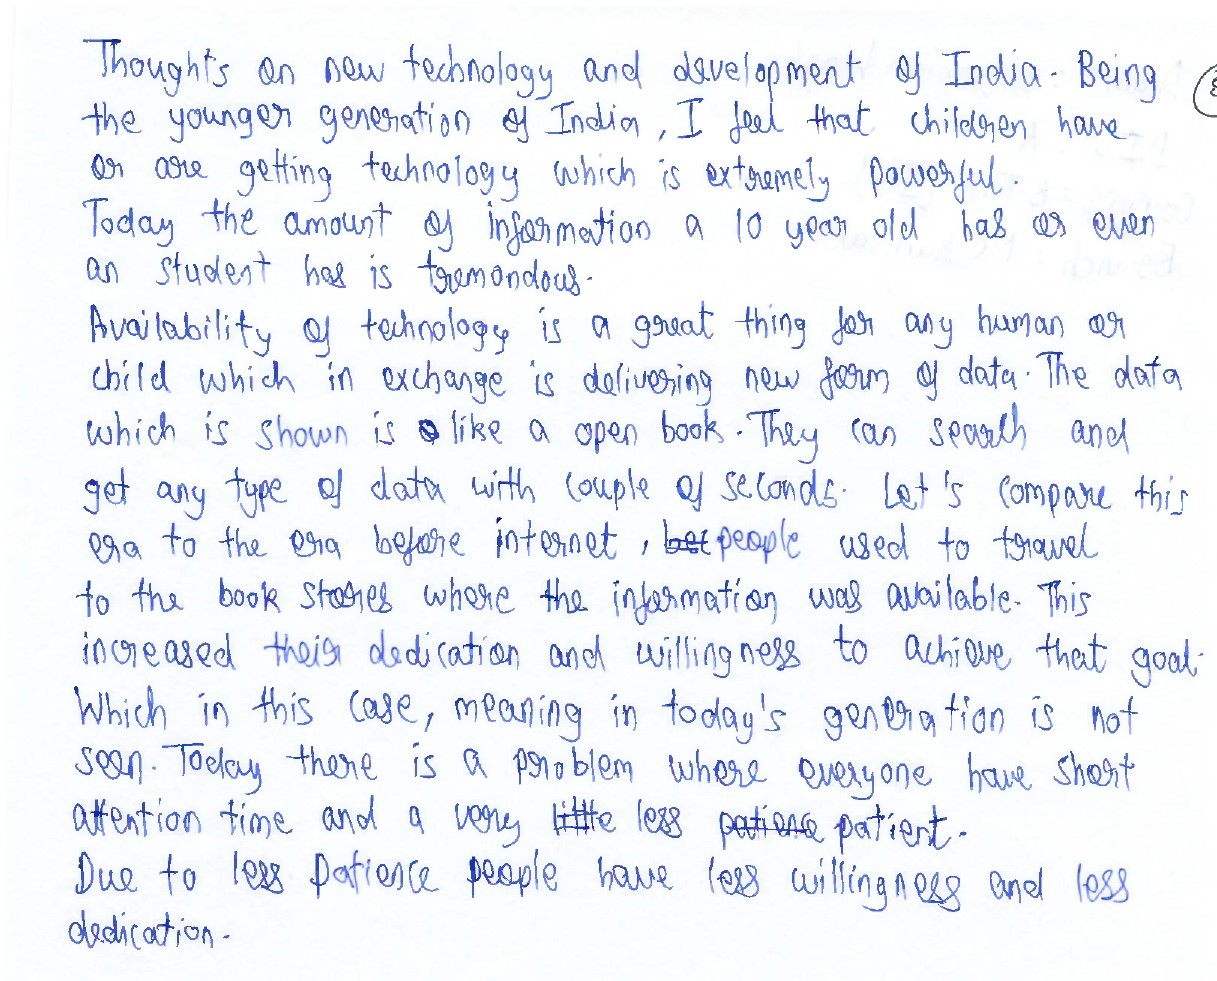 Thoughts on new technology and development of India. Being
the younger generation of India, I feel that children have
or are getting technology which is extremely powerful.
Today the amount of information a 10 year old has or even
an student has is tremondous.
Availability of technology is a great thing for any human or
child which in exchange is delivering new form of data. The data
which is shown is like a open book. They can search and
get any type of data with couple of seconds. Let's compare this
era to the era before internet, people used to travel
to the book stores where the information was available. This
increased their dedication and willingness to achieve that goal.
Which in this case, meaning in today's generation is not
seen. Today there is a problem where everyone have short
attention time and a very little less patience patient.
Due to less patience people have less willingness and less
dedication.